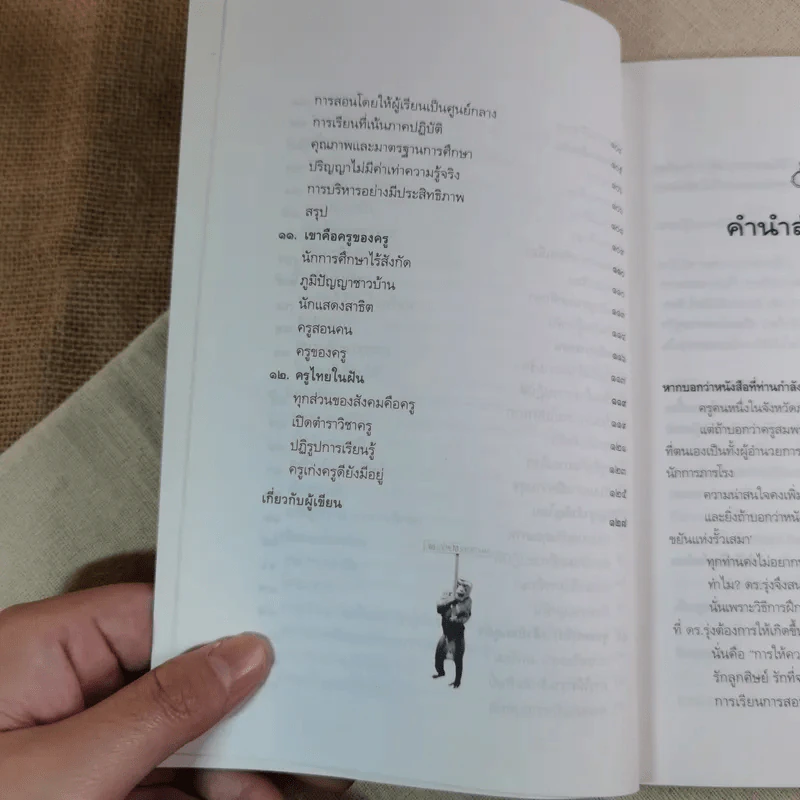 การสอนโดยให้ผู้เรียนเป็นศูนย์กลาง
การเรียนที่เน้นภาคปฏิบัติ
คุณภาพและมาตรฐานการศึกษา
ปริญญาไม่มีค่าเท่าความรู้จริง
การบริหารอย่างมีประสิทธิภาพ
สรุป
๑๑. เขาคือครูของครู
นักการศึกษาไร้สังกัด
ภูมิปัญญาชาวบ้าน
นักแสดงสาธิต
ครูสอนคน
ครูของครู
๑๒. ครูไทยในฝัน
ทุกส่วนของสังคมคือครู
เปิดตำราวิชาครู ๑๒๑
ปฏิรูปการเรียนรู้ ๑๒๓
ครูเก่งครูดียังมีอยู่ ๑๒๕
เกี่ยวกับผู้เขียน
คำนำส
หากบอกว่าหนังสือที่ท่านกำลัง
ครูคนหนึ่งในจังหวัด
แต่ถ้าบอกว่าครูสมพ
ที่ตนเองเป็นทั้งผู้อำนวยการ
นักการภารโรง
ความน่าสนใจคงเพิ่ม
และยิ่งถ้าบอกว่าหนั
ขยันแห่งรั้วเสมา'
ทุกท่านคงไม่อยาก
ทำไม? ดร.รุ่งจึงสน
นั่นเพราะวิธีการฝึก
ที่ ดร.รุ่งต้องการให้เกิดขึ้น
นั่นคือ "การให้คว
รักลูกศิษย์ รักที่จ
การเรียนการสอ